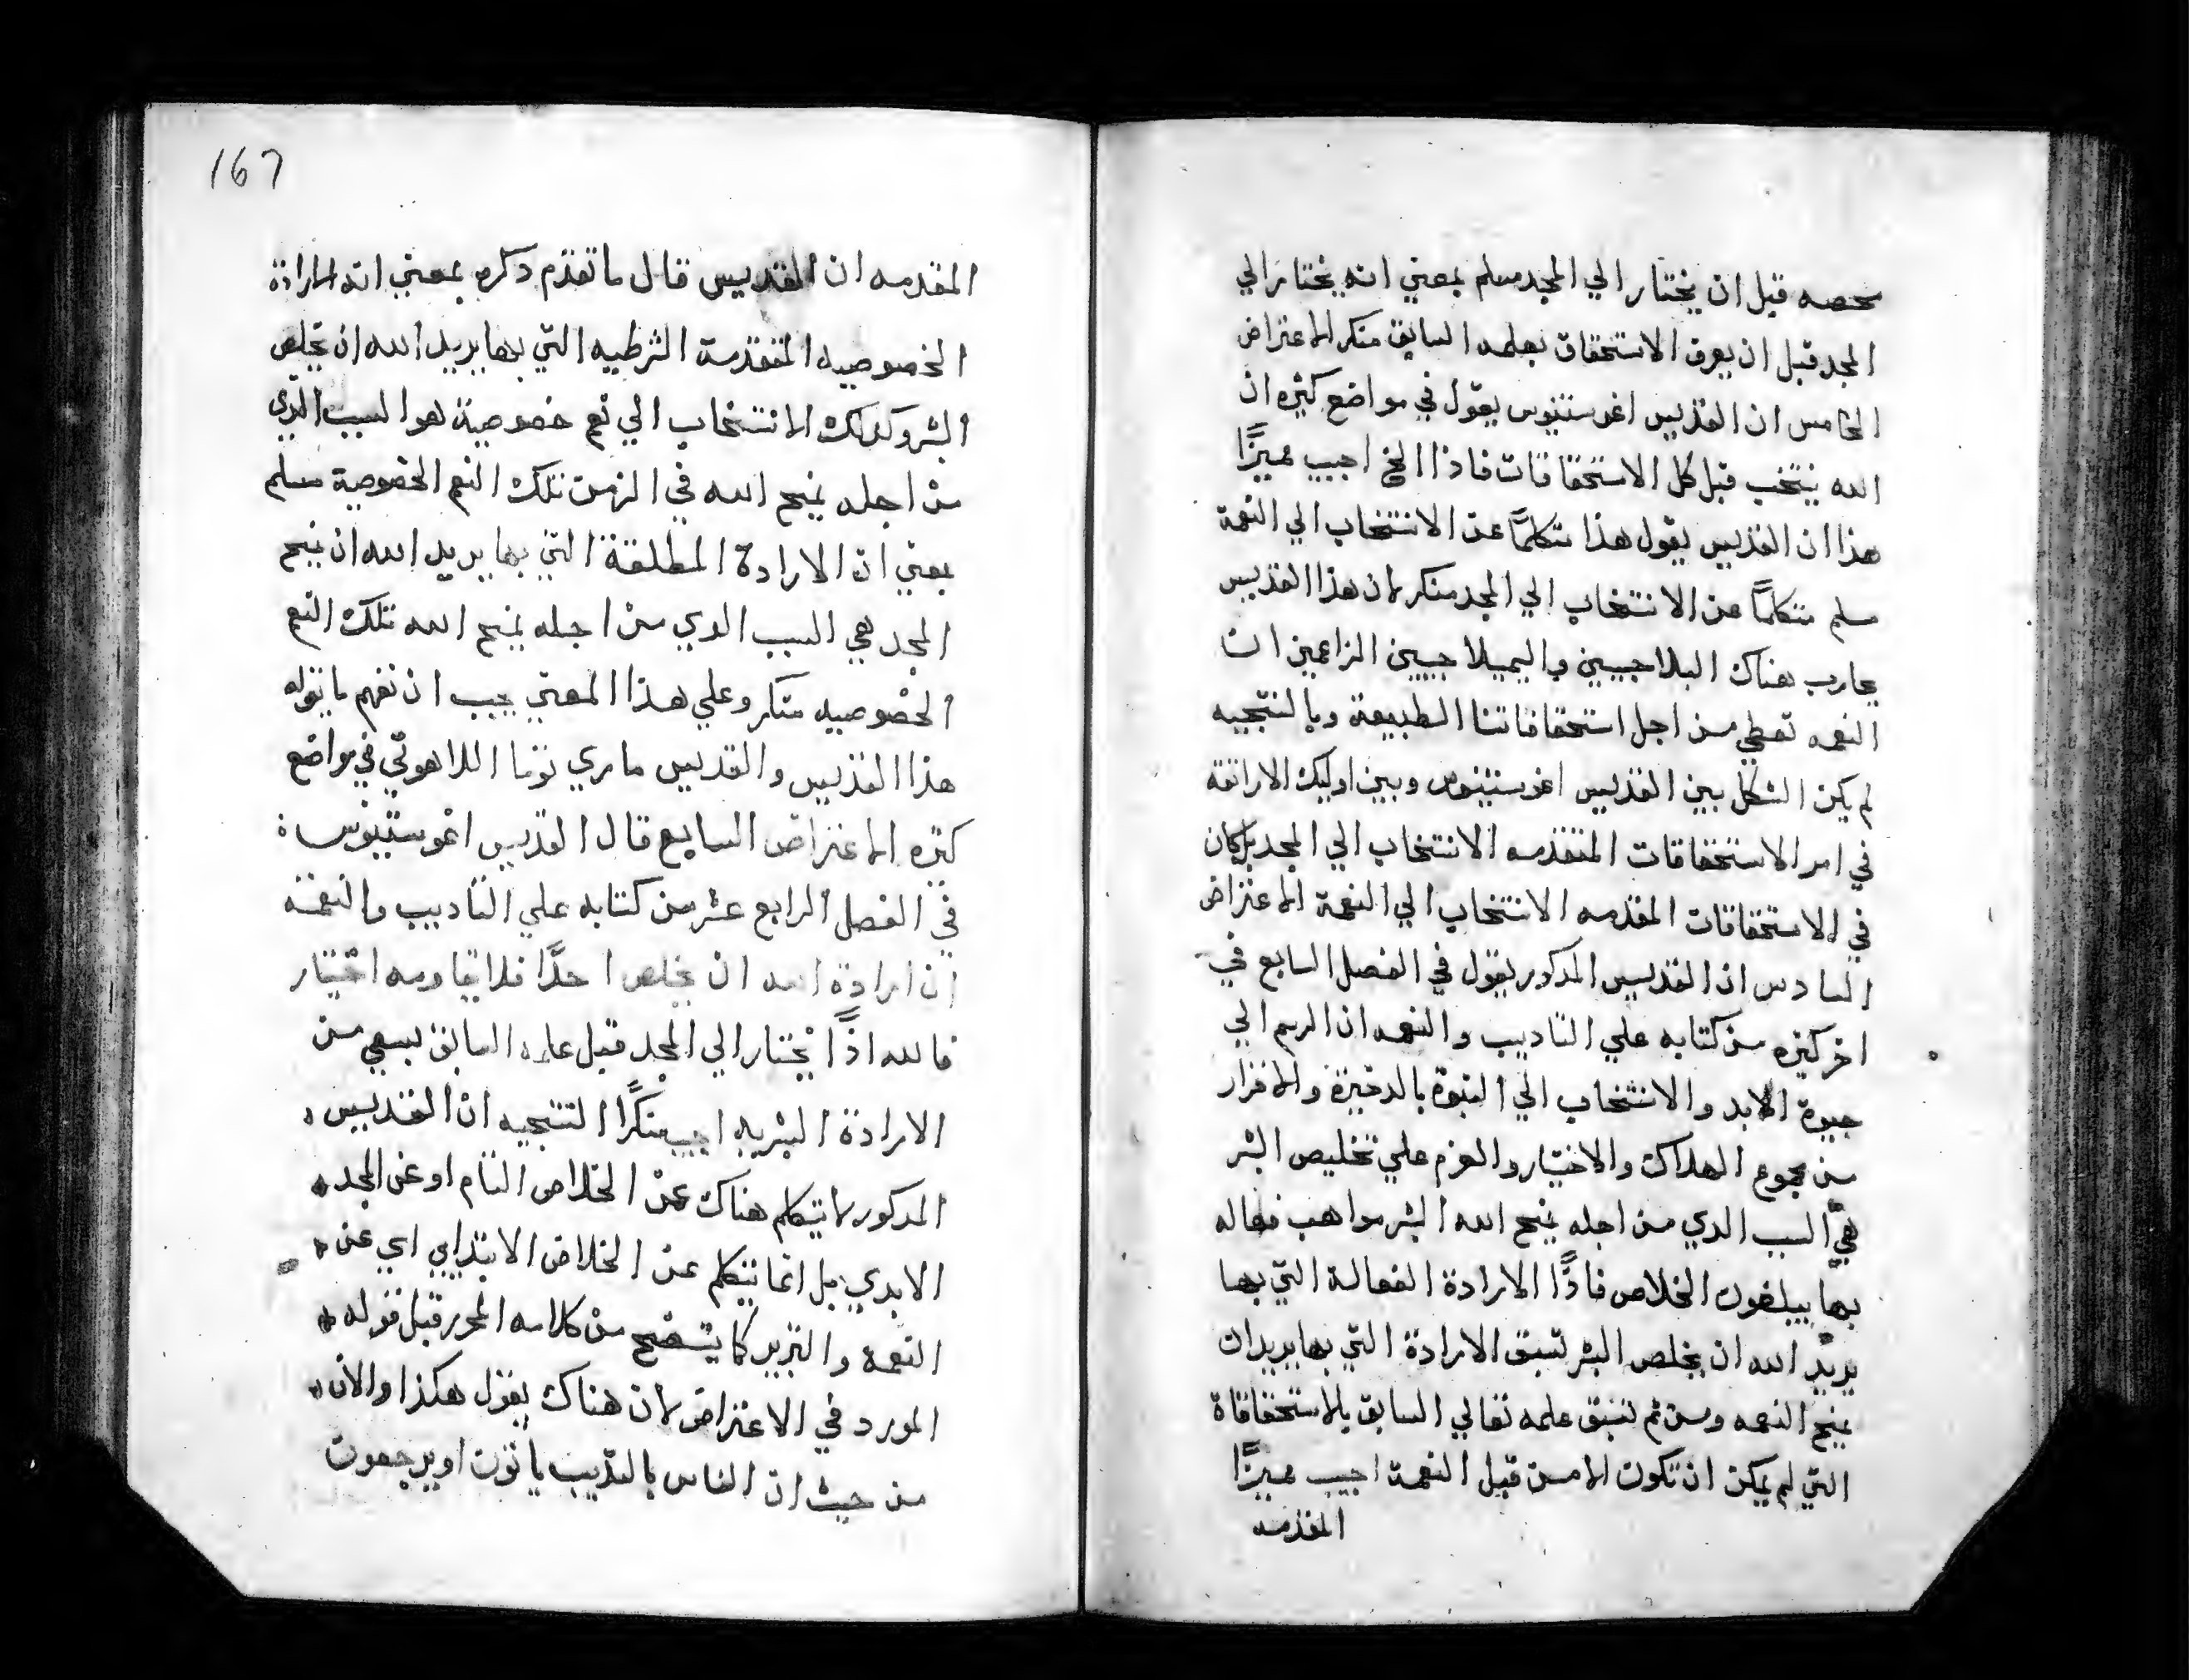 محصه قبل ان يختار الي المجد مسلم بمعني انه يختار الي
المجد قبل ان يعرف الاستحقاق بعلمه السابق منكر الاعتراض
الخامس ان القديس اغوستينوس يقول في مواضع كثيره ان
الله ينتخب قبل كل الاستحقاقات فاذا الخ اجيب مميزًا
هذا ان القديس يقول هذا متكلمًا عن الانتخاب الي النعمة
مسلم متكلمًا عن الانتخاب الي المجد منكر لان هذا القديس
يحارب هناك البلاجيين واليميلاجيين الزاعمين ان
النعمه تعطي من اجل استحقاقاتنا الطبيعة وبالنتجيه
لم يكن الشكل بين القديس اغوستينوس وبين اوليك الاراتقة
في امر الاستحقاقات المتقدمه الانتخاب الي المجد بل كان
في الاستحقاقات المقدمه الانتخاب الي النعمة الاعتراض
السادس ان القديس المدكور يقول في الفصل السابع في
اخر كثيره من كتابه علي التاديب والنعمه ان الرسم الي
حيوة الابد والانتخاب الي النبوة بالدخيرة والافرار
من مجموع الهلاك والاختيار والعزم علي تخليص البشر
هي السبب الدي من اجله يمنح الله البشر مواهب فعاله
بها يبلغون الخلاص فاذًا الارادة الفعالة التي بها
يريد الله ان يخلص البشر تسبق الارادة التي بها يريد ان
يمنح النعمه ومن ثم تسبق علمه تعالي السابق بالاستحقاقاة
التي لم يمكن ان تكون الا من قبل النعمة اجيب مميزًا
المقدمه
167
المقدمه ان القديس قال ما تقدم دكره بمعني ان الارادة
الخصوصيه المتقدمة الشرطيه التي بها يريد الله ان يخلص
البشر وكدلك الانتخاب الي نعم خصوصية هو السبب الدي
من اجله يمنح الله في الزمن تلك النعم الخصوصية مسلم
بمعني ان الارادة المطلقة التي بها يريد الله ان يمنح
المجد هي السبب الدي من اجله يمنح الله تلك النعم
الخصوصيه منكر وعلي هذا المعني يجب ان نفهم ما يقوله
هذا القديس والقديس ماري توما اللاهوتي في مواضع
كثره الاعتراض السابع قال القديس اغوستينوس :
في الفصل الرابع عشر من كتابه علي التاديب والنعمه
ان ارادة الله ان يخلص احدًا فلا يقاومه اختيار
فالله اذًا يختار الي المجد قبل علمه السابق بسعي من
الارادة البشريه اجيب منكرًا النتجيه ان القديس
المدكور لا يتكلم هناك عن الخلاص التام او عن المجد
الابدي بل انما يتكلم عن الخلاص الابتدايي اي عن
النعمة والتبرير كما يتضح من كلامه المحرر قبل قوله
المورد في الاعتراض لان هناك يقول هكذا والان
من حيث ان الناس بالتديب ياتون او يرجعون